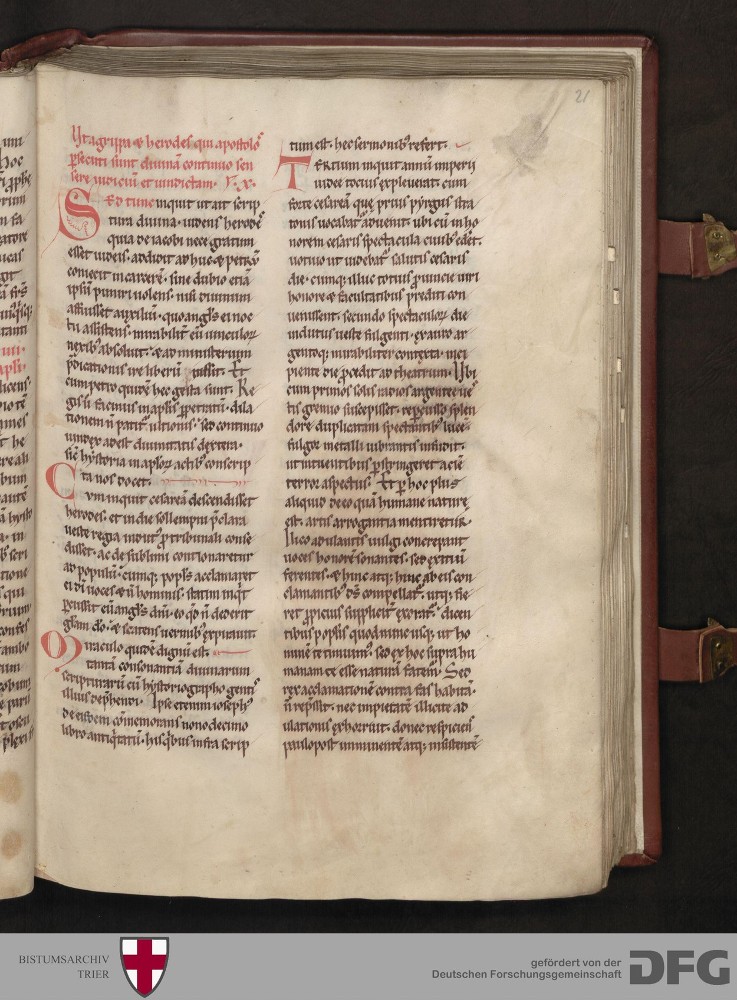 21
Vt agrippa & herodes qui apostolos
psecuti sunt diuinā continuo sen
sere iudiciū et uindictam. V. X.
Sed tunc inquit ut ait scrip
tura diuina. uidens herodes
quia de iacobi nece gratum
esset iudeis. addidit adhuc & petrū
coniecit in carcerē. sine dubio etiā
ipsū puniri uolens. nisi diuinum
affuisset auxiliū. quo angls ei noc
tu assistens. mirabilit eū uinculoꝝ
nexibꝰ absoluit. & ad ministerium
pdicationis ire liberū iussit. Et
cum petro quidē hec gesta sunt. Re
gis ū facinus in aplis ppetratū. dila
tionem n̄ patit ultionis. sed continuo
uindex adest diuinitatis dextera.
sic hystoria in aploꝝ actibꝰ conscrip
ta nos docet.
Cum inquit cesareā descendisset
herodes. et in die sollempni pclara
ueste regia indutꝰ p tribunali conse
disset. ac de sublimi contionaretur
ad populū. cumq; popls acclamaret
ei di uoces & n̄ hominis. statim inqt
pcussit eū angls dni. eo qd n̄ dederit
glam do. & scatens uermibꝰ expirauit.
Miraculo quidē dignū est.
tantā consonantiā diuinarum
scripturarū cū hystoriographo gentis
illius dephendi. Ipse etenim iosephꝰ
de eisdem cōmemorans nono decimo
libro antiqtatū. his qbus infra scrip
tum est. hec sermonibꝰ refert.
Tertium inquit annū imperii
iudee tocius expleuerat. cum
forte cesareā que prius pyrgus stra
tonis uocabat aduenit. ubi cū in ho
norem cesaris spectacula ciuibꝰ edet.
uotiuo ut uidebat saluti cesaris
die. cumq; illuc totius puincie uiri
honore & facultatibus prediti con
uenissent. secundo spectaculoꝝ die
indutus ueste fulgenti. ex auro ar
gentoq; mirabiliter contexta. inci
piente die pcedit ad theatrum. Vbi
cum primos solis radios argentee ues
tis gremio suscepisset. repcusso splen
dore duplicatū spectantibꝰ luce.
fulgor metalli uibrantis infudit.
ut intuentibus pstringeret aciē
terror aspectus. Et p hoc plus
aliquid de eo quā humane nature
est. artis arrogantia mentiretur.
Ilico adulantis uulgi concrepant
uoces honorē sonantes. sed exitiū
ferentes. & hinc atq; hinc ab eis con
clamantibꝰ ds compellat. utq; fie
ret ppicius supplicit exorat. dicen
tibus poplis quod nunc usq; ut ho
minē te timuimꝰ. sed ex hoc supra hu
manam te esse naturā fatemur. Sed
rex acclamationē contra fas habitā.
n̄ repssit. nec impietatē illicite ad
ulationis exhorruit. donec respiciens
paulo post imminentē atq; insistentē
BISTUMSARCHIV
TRIER
gefördert von der
Deutschen Forschungsgemeinschaft
DFG